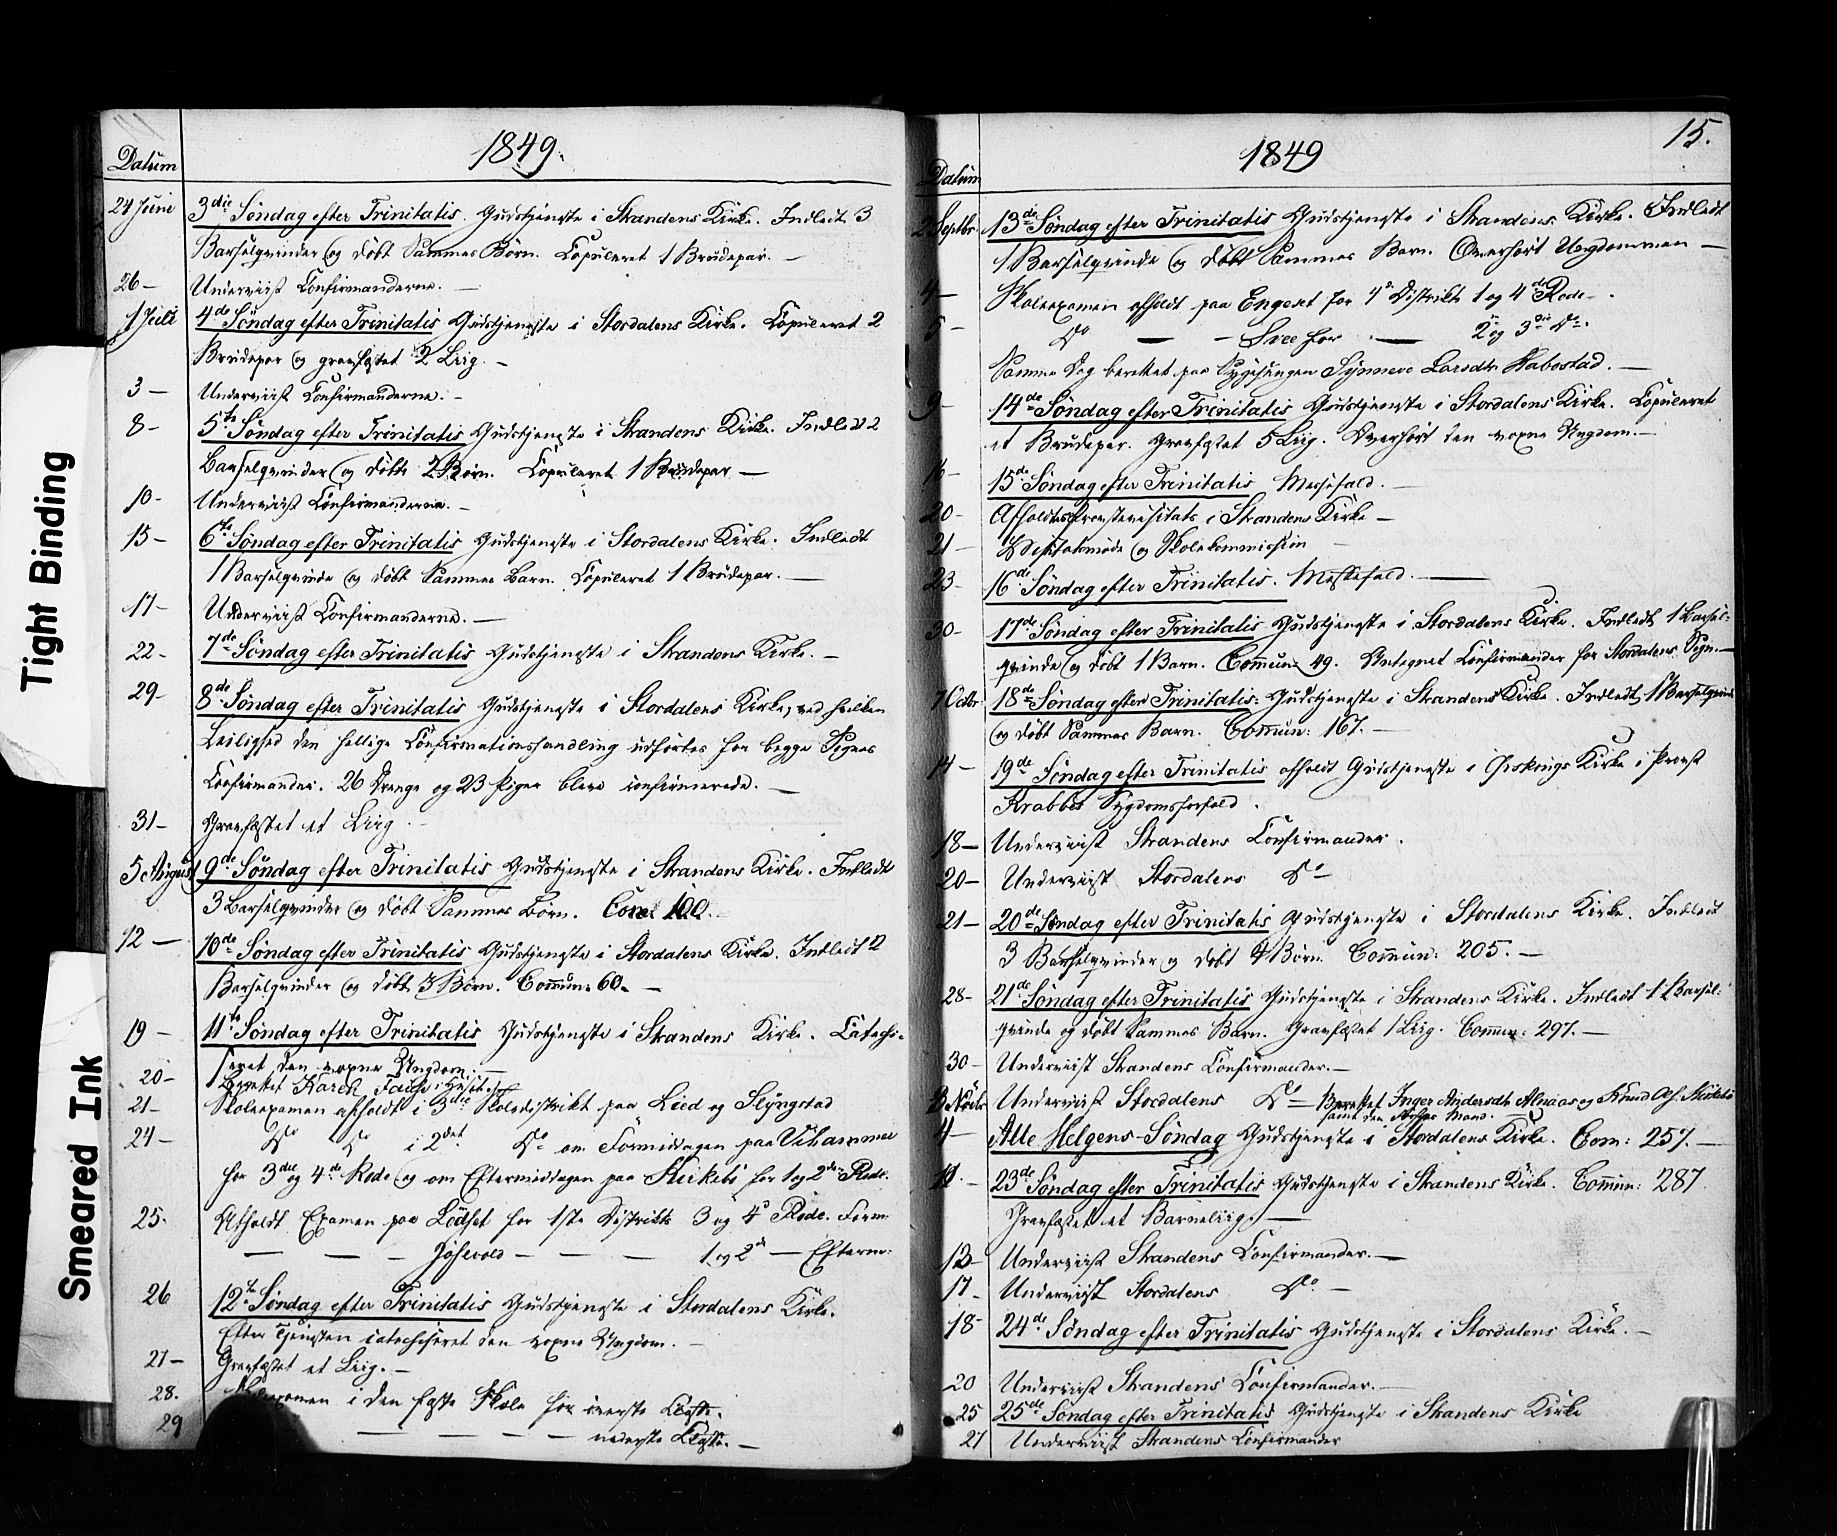 Tight Binding
Smeared Ink
1849.
Datum
24 Juni 3die Søndag efter Trinitatis. Gudstjeneste i Strandens Kirke. Indledt 3
Barselqvinder og døbt Sammes Børn. Copuleret 1 Brudepar. —
26 — Underviist Confirmanderne. —
1 Juli 4de Søndag efter Trinitatis Gudstjeneste i Stordalens Kirke. Copuleret 2
Brudepar og gravfæstet 2 Liig. —
3 — Underviist Confirmanderne. —
8 — 5te Søndag efter Trinitatis Gudstjeneste i Strandens Kirke. Indledt 2
Barselqvinder og døbt 2 Børn. Copuleret 1 Brudepar —
10 — Underviist Confirmanderne. —
15 — 6te Søndag efter Trinitatis Gudstjeneste i Stordalens Kirke. Indledt
1 Barselqvinde og døbt Sammes Barn. Copuleret 1 Brudepar. —
17 — Underviist Confirmanderne. —
22 — 7de Søndag efter Trinitatis Gudstjeneste i Strandens Kirke. —
29 — 8de Søndag efter Trinitatis Gudstjeneste i Stordalens Kirke, ved hvilken
Leilighed den hellige Confirmationshandling udførtes for begge Sognes
Confirmander. 26 Drenge og 23 Piger bleve confirmerede. —
31 — Gravfæstet et Liig. —
5 August 9de Søndag efter Trinitatis Gudstjeneste i Strandens Kirke. Indledt
3 Barselqvinder og døbt Sammes Børn. Com: 100.
12 — 10de Søndag efter Trinitatis Gudstjeneste i Stordalens Kirke. Indledt 2
Barselqvinder og døbt 3 Børn. Commun: 60. —
19 — 11te Søndag efter Trinitatis Gudstjeneste i Strandens Kirke. Catechi-
seret den voxne Ungdom. —
20 — Berettet Karen
21 — Skoleexamen afholdt i 3die Skoledistrikt paa Lied og Slyngstad
24 — Do Do i 2det Do om Formiddagen paa Vihammer
for 3die og 4de Rode og om Eftermiddagen paa Kirkebö for 1 og 2den Rode.
25. Afholdt Examen paa Lödset for 1ste Distrikts 3 og 4de Rode. Form:
— — — Jöhsvold — — — 1 og 2d — Efterm:
26 12te Søndag efter Trinitatis Gudstjeneste i Stordalens Kirke.
Efter Tjenesten catechiseret den voxne Ungdom. —
27 — Gravfæstet et Liig. —
28. Skoleexamen i den faste Skole for øverste Classe.
29 — — — — nederste Classe. —
15.
1849
Datum
2 Septbr. 13de Søndag efter Trinitatis Gudstjeneste i Strandens Kirke. Indledt
1 Barselqvinde og døbt Sammes Barn. Overhört Ungdommen —
4 — Skoleexamen afholdt paa Engeset for 4de Distrikts 1 og 4de Rode —.
5 — Do — — Svee for — 2 og 3die Do.
Samme Dag berettet paa Sygesengen Synneve Larsdtr Habostad. —
9 — 14de Søndag efter Trinitatis Gudstjeneste i Stordalens Kirke. Copuleret
et Brudepar. Gravfæstet 5 Liig. Overhört den voxne Ungdom. —
16 — 15de Søndag efter Trinitatis Messefald. —
20 — Afholdtes Provstevisitats i Strandens Kirke —
21 — og Skolekommission —
23 — 16de Søndag efter Trinitatis. Messefald. —
30 — 17de Søndag efter Trinitatis Gudstjeneste i Stordalens Kirke. Indledt 1 Barsel-
qvinde og døbt 1 Barn. Commun: 49. Antegnet Confirmander for Stordalens Sogn. —
7 Octbr. 18de Søndag efter Trinitatis. Gudstjeneste i Strandens Kirke. Indledt 1 Barselqvinde
og døbt Sammes Barn. Commun: 167. —
14 — 19de Søndag efter Trinitatis afholdt Gudstjeneste i Ørskougs Kirke i Provst
Krabbes Sygdomsforfald.
18 — Underviist Strandens Confirmander.
20 — Underviist Stordalens Do —
21 — 20de Søndag efter Trinitatis Gudstjeneste i Stordalens Kirke. Indledt
3 Barselqvinder og døbt 4 Børn. Commun: 205. —
28 — 21de Søndag efter Trinitatis Gudstjeneste i Strandens Kirke. Indledt 1 Barsel-
qvinde og døbt Sammes Barn. Gravfæstet 1 Liig. Commun: 297. —
30 — Underviist Strandens Confirmander. —
3 Novbr Underviist Stordalens Do — Berettet Inger Andersdtr Almaas og Knud
samt den Mand.
4 — Alle Helgens-Søndag Gudstjeneste i Stordalens Kirke. Com: 257. —
11. — 23de Søndag efter Trinitatis Gudstjeneste i Strandens Kirke. Commun: 287.
Gravfæstet et Barneliig. —
13 — Underviist Strandens Confirmander. —
17 — Underviist Stordalens Do. —
18 — 24de Søndag efter Trinitatis Gudstjeneste i Stordalens Kirke. —
20 Underviist Strandens Confirmander. —
25 25de Søndag efter Trinitatis Gudstjeneste i Strandens Kirke
27 Underviist Strandens Confirmander